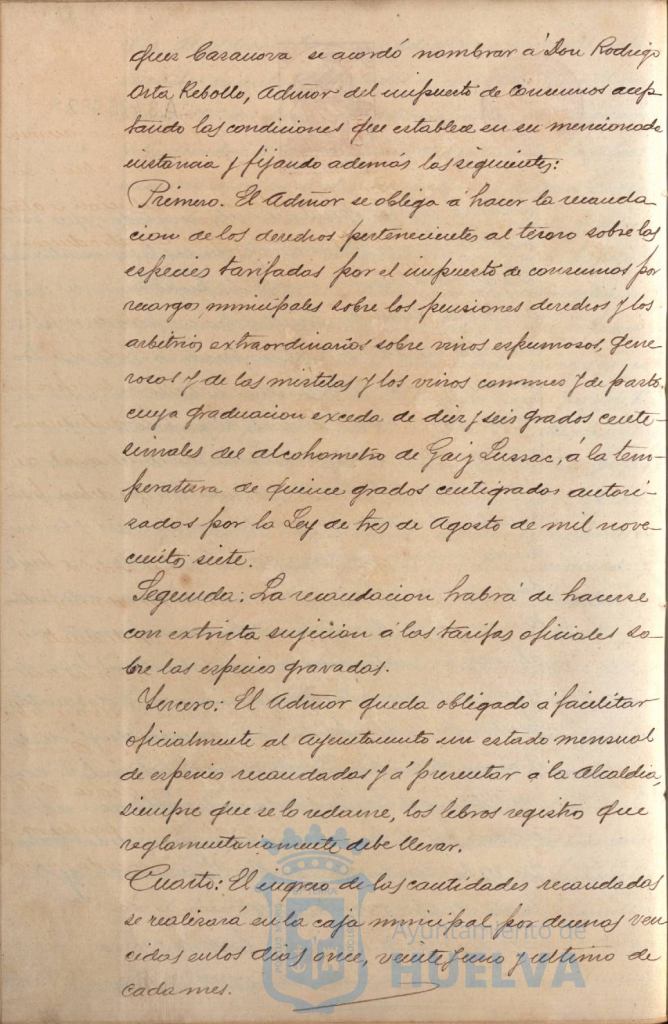 quez Casanova se acordó nombrar á Don Rodrigo
Orta Rebollo, Admor del impuesto de consumos acep
tando las condiciones que establece en su mencionada
instancia y fijando además las siguientes:
Primero. El Admor se obliga á hacer la recauda
cion de los derechos pertenecientes al tesoro sobre las
especies tarifadas por el impuesto de consumos por
recargos municipales sobre los derechos y los
arbitrios extraordinarios sobre vinos espumosos, gene
rosos y de las mistelas y los vinos comunes y de pasto
cuya graduacion exceda de diez y seis grados cente-
simales del alcohometro de Gaiy Lussac, á la tem-
peratura de quince grados centigrados autori-
zados por la Ley de tres de Agosto de mil nove-
cientos siete.
Segunda: La recaudacion habrá de hacerse
con extricta sujecion á las tarifas oficiales so-
bre las especies gravadas.
Tercero: El Admor queda obligado á facilitar
oficialmente al Ayuntamiento un estado mensual
de especies recaudadas y á presentar á la Alcaldia,
siempre que se lo reclame, los libros registro que
reglamentariamente debe llevar.
Cuarto: El ingreso de las cantidades recaudadas
se realizará en la caja municipal por decenas ven
cidas en los dias once, veintiuno y ultimo de
cada mes.
Ayuntamiento de
HUELVA